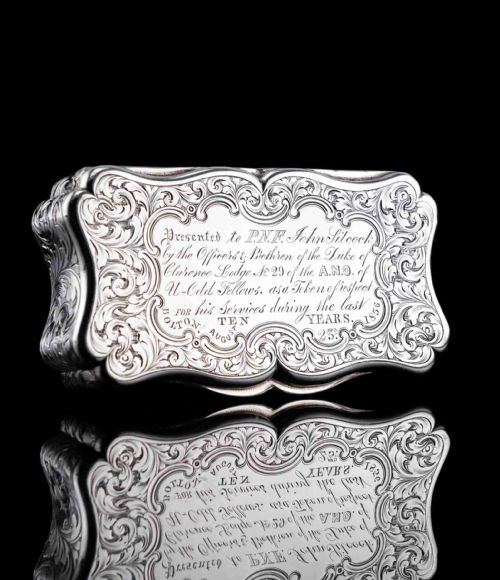 Presented to P.N.F. John Silcock
by the Officers & Brethren of the Duke of
Clarence Lodge No 29 of the A.N.O. of
U-Odd Fellows. as a Token of respect
FOR his Services during the last
TEN YEARS.
BOLTON AUGUST 23rd